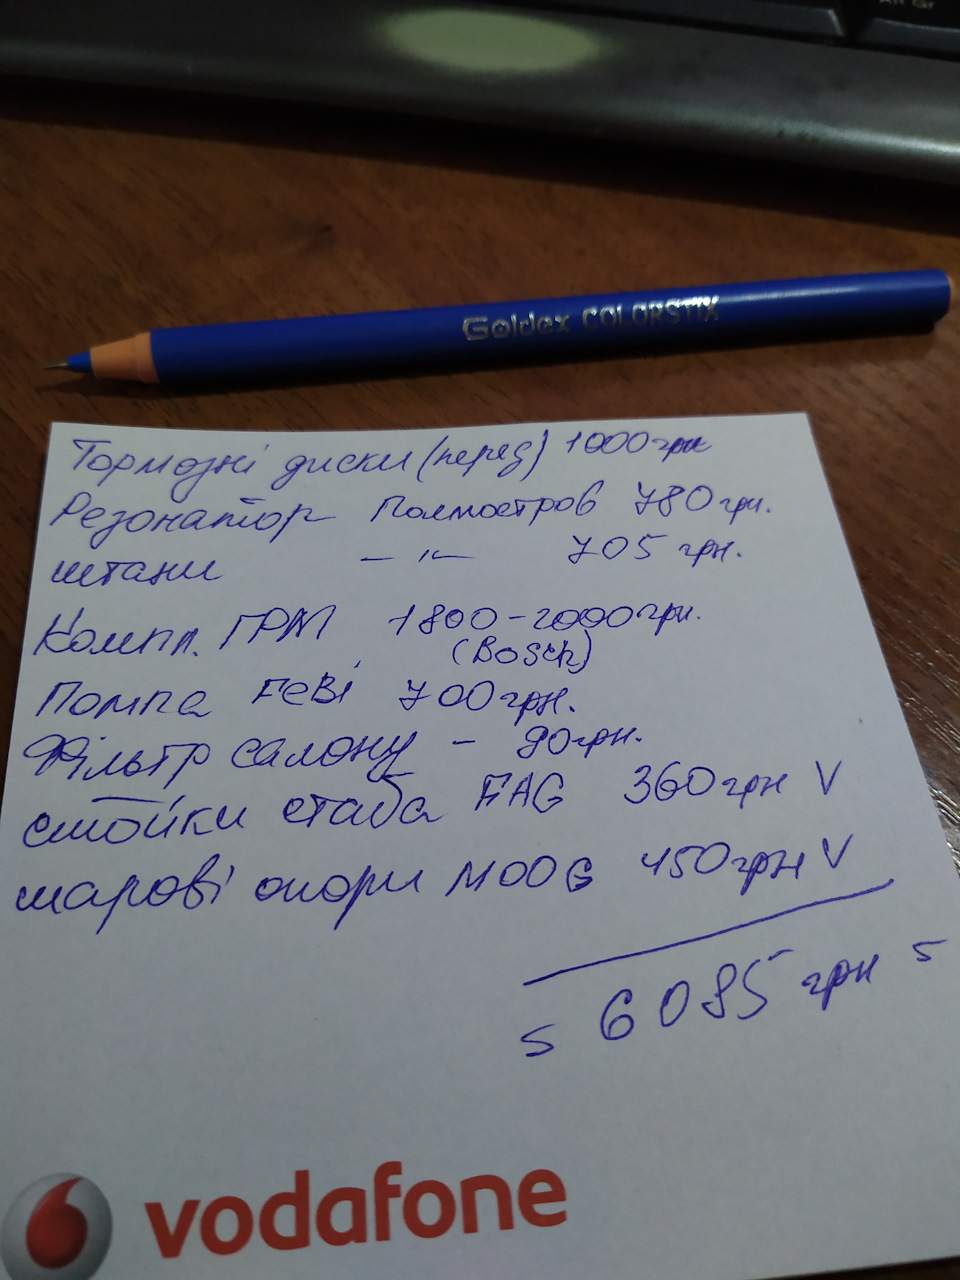 Alt Gr
Goldex COLORSTIX
Тормозні диски (перед) 1000 грн
Резонатор Полмостров 780 грн.
штани — " — 705 грн.
Компл. ГРМ 1800-2000 грн.
(Bosch)
Помпа FeBi 700 грн.
Фільтр салону - 90 грн.
стойки стаба FAG 360 грн V
шарові опори MOOG 450 грн V
5 6085 грн 5
vodafone